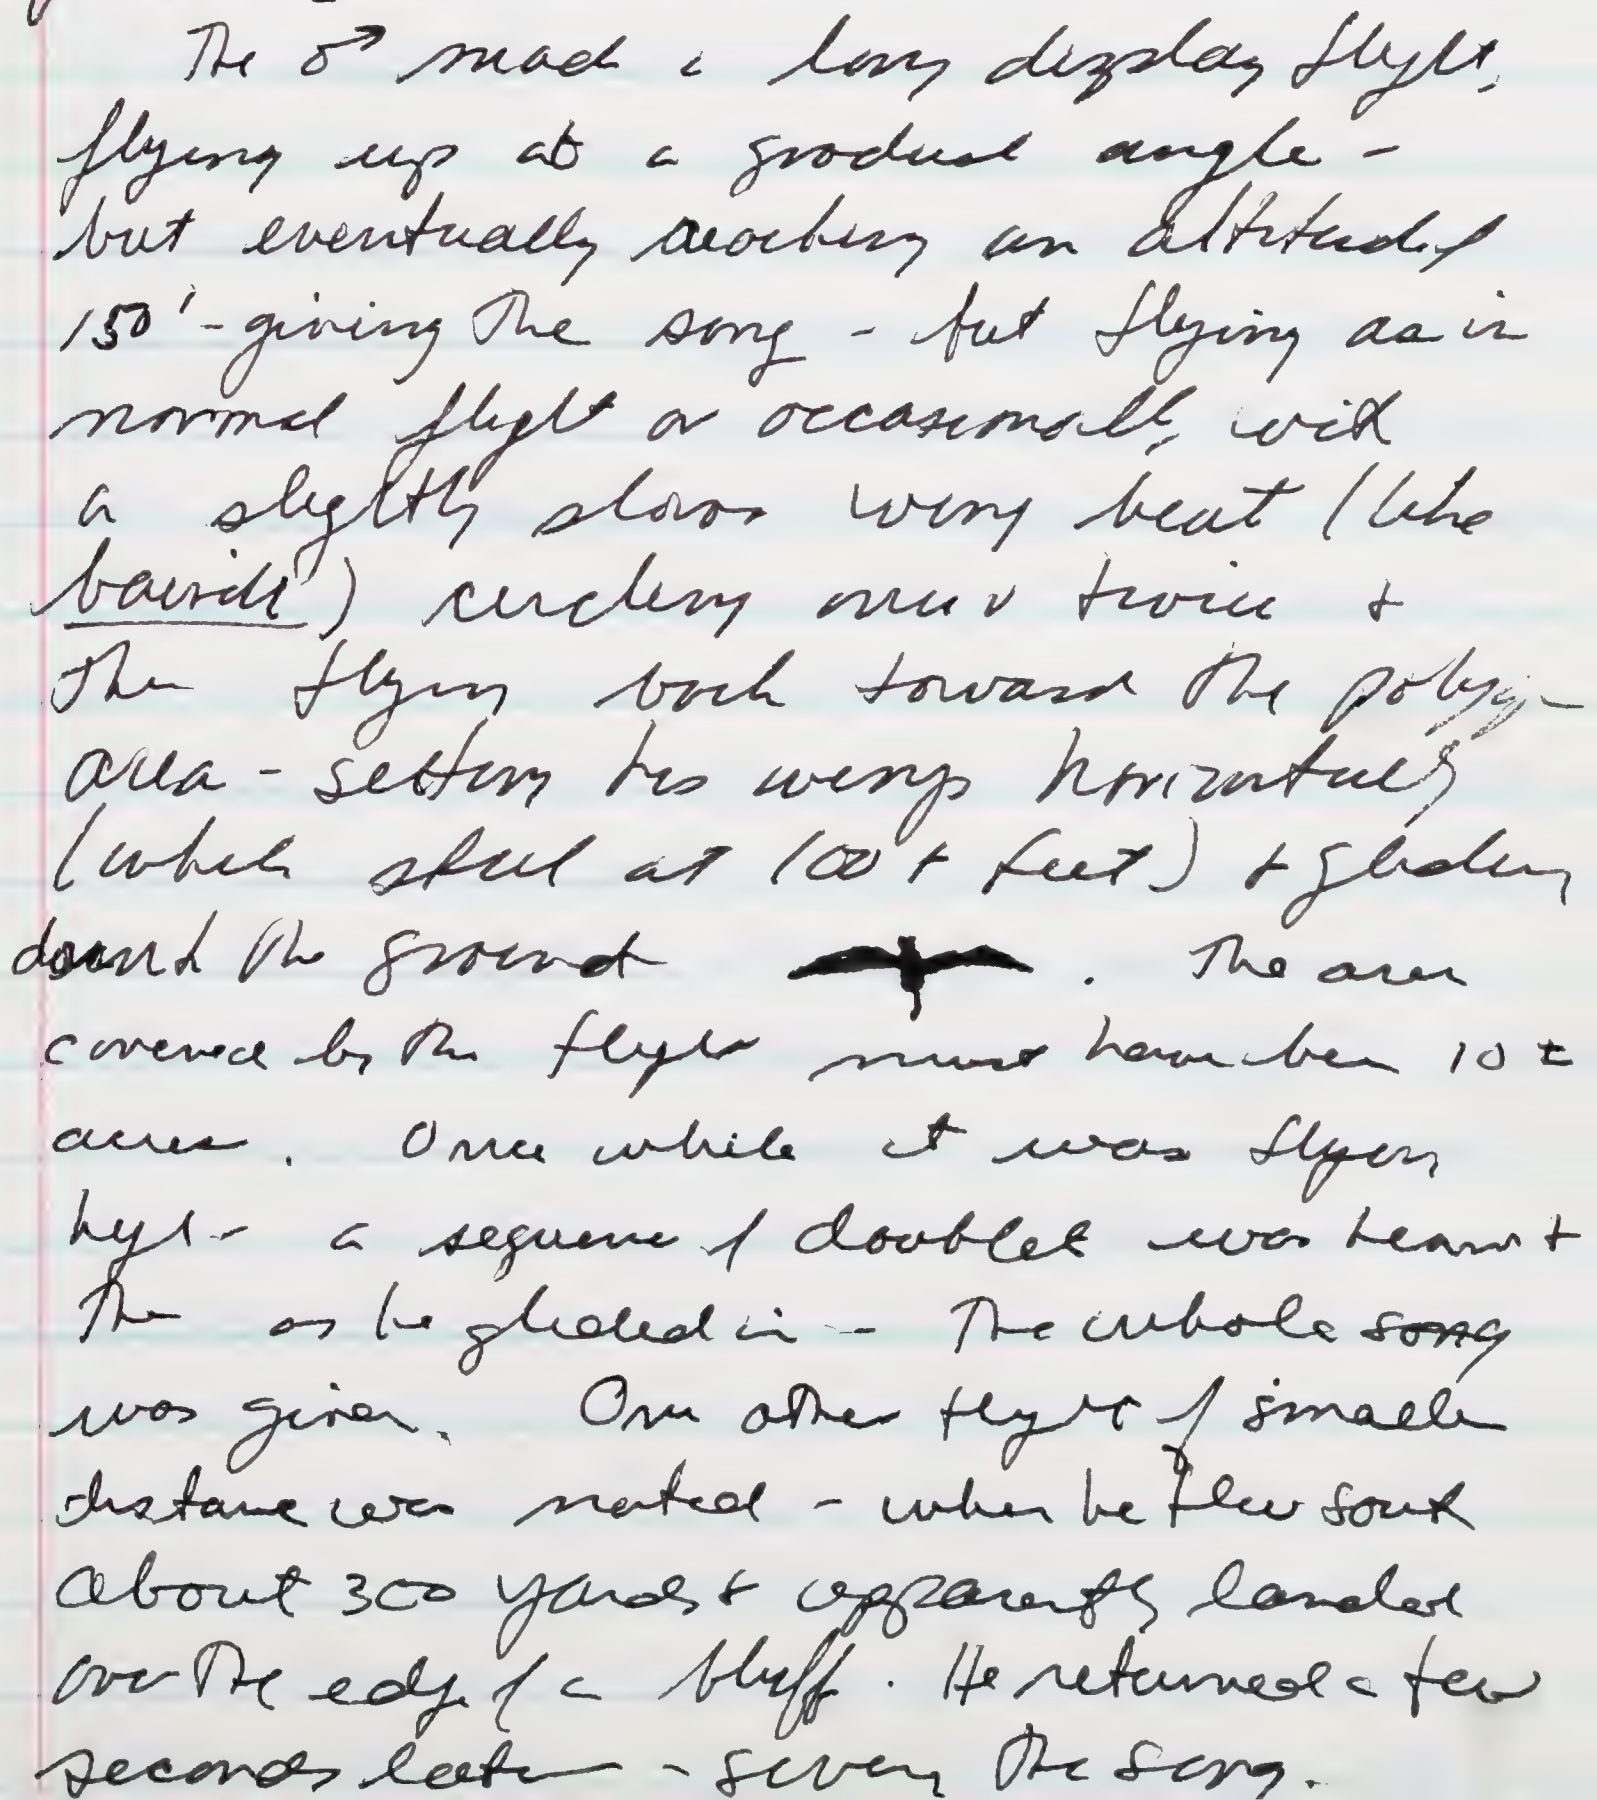 The ♂ made a long display flight,
flying up at a gradual angle -
but eventually reaching an altitude of
150' - giving the song - but flying as in
normal flight or occasionally, with
a slightly slower wing beat (like
bairdi) circling once or twice +
then flying back toward the polygon
area - setting his wings horizontally
(while still at 100 + feet) + gliding
down to the ground . The area
covered by the flight must have been 10 ±
acres. Once while it was flying
high - a sequence of doublets was heard +
then as he glided in - the whole song
was given. One other flight of smaller
distance was noted - when he flew south
about 300 yards + apparently landed
over the edge of a bluff. He returned a few
seconds later - giving the song.